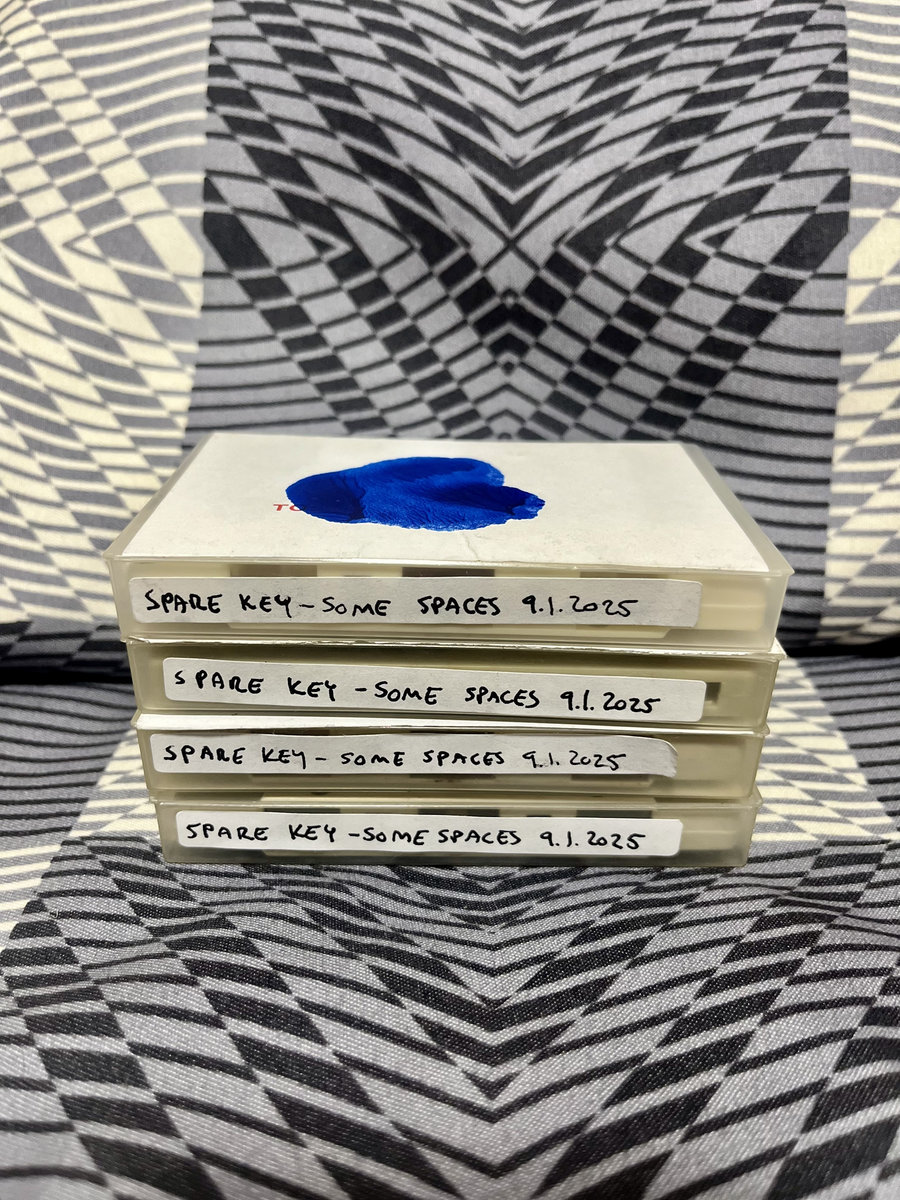 TO
SPARE KEY - SOME SPACES 9.1.2025
SPARE KEY - SOME SPACES 9.1.2025
SPARE KEY - SOME SPACES 9.1.2025
SPARE KEY - SOME SPACES 9.1.2025